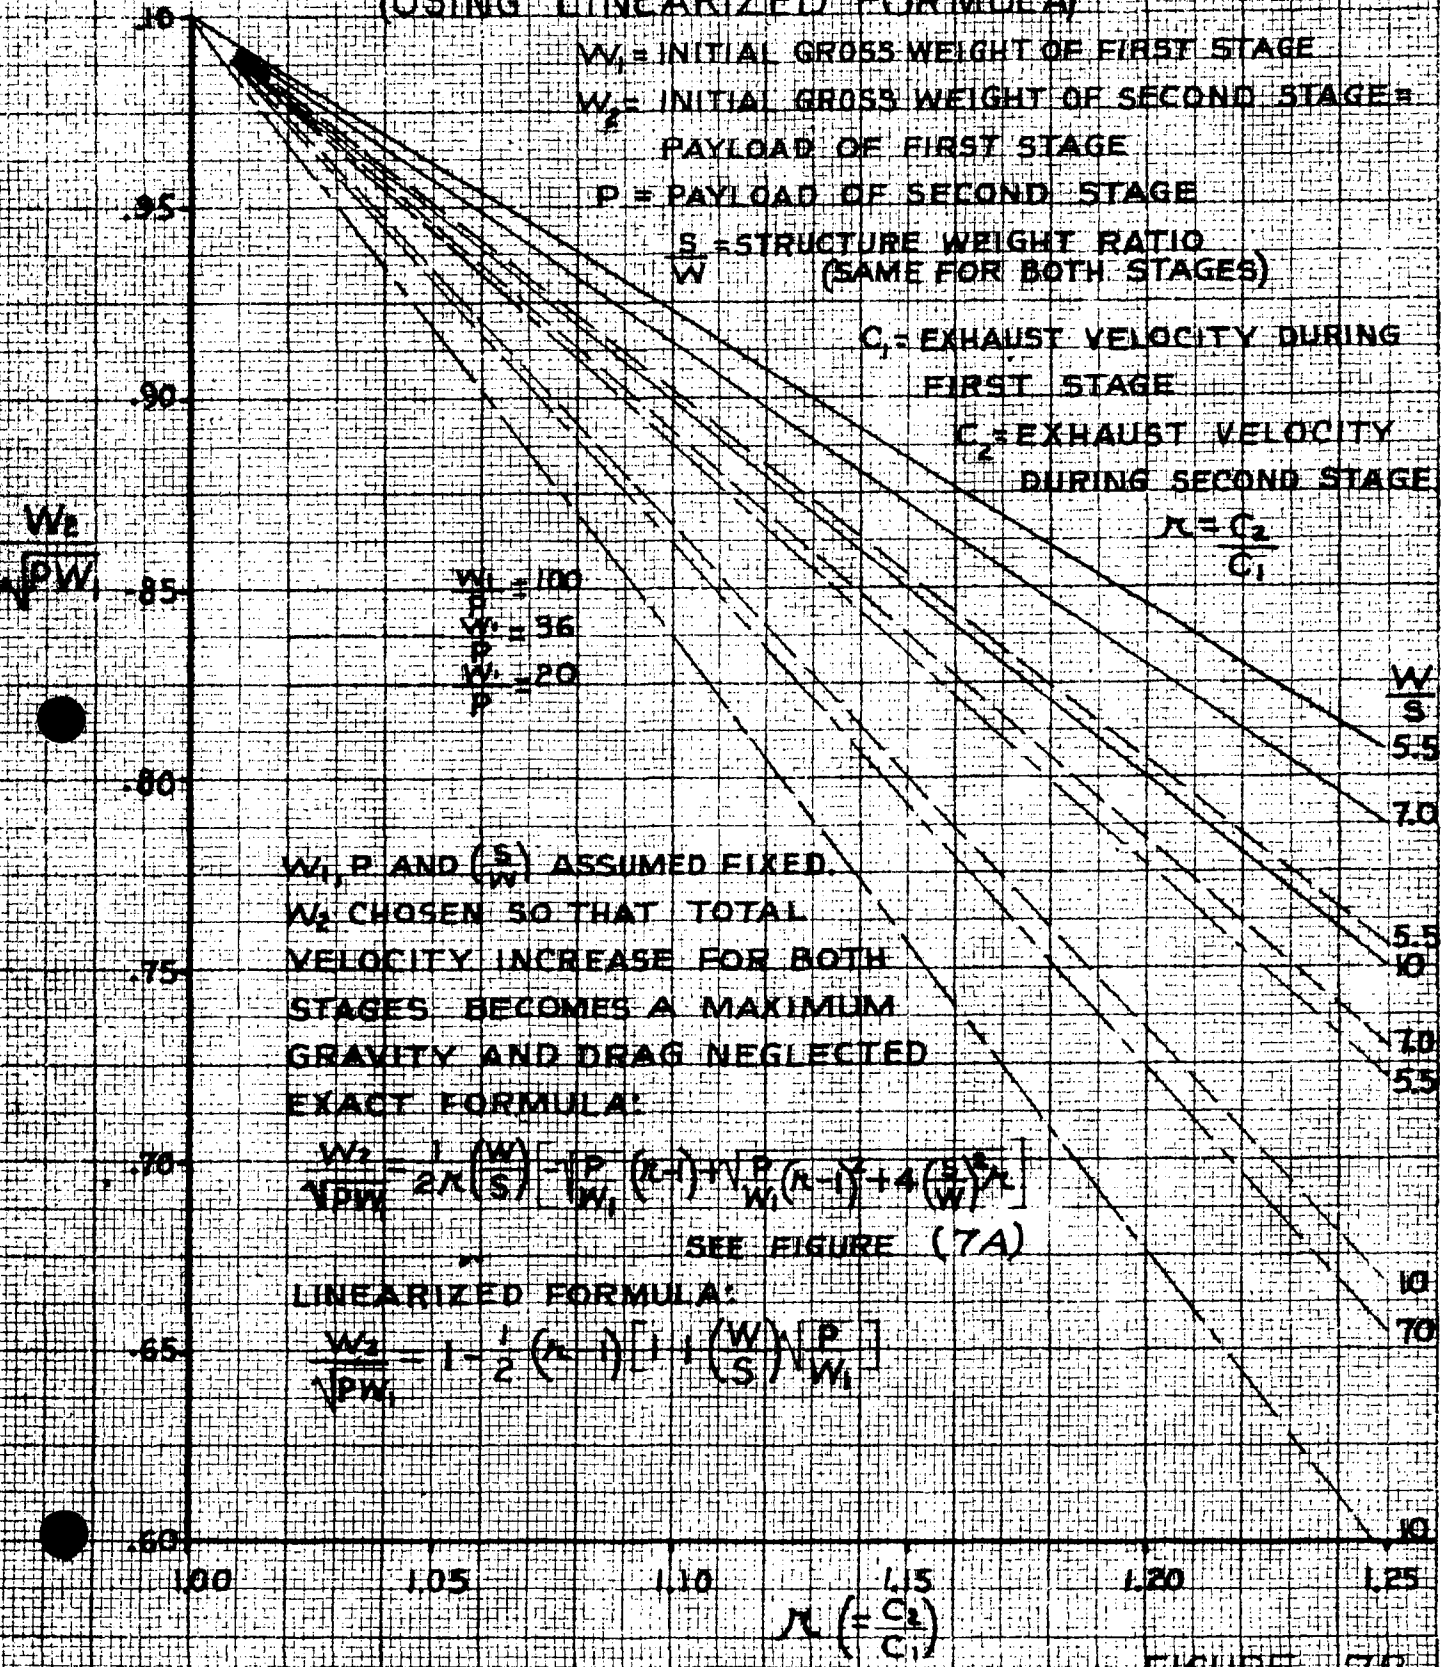 (USING LINEARIZED FORMULA)
W₁ = INITIAL GROSS WEIGHT OF FIRST STAGE
W₂ = INITIAL GROSS WEIGHT OF SECOND STAGE =
PAYLOAD OF FIRST STAGE
P = PAYLOAD OF SECOND STAGE
S/W = STRUCTURE WEIGHT RATIO
(SAME FOR BOTH STAGES)
C₁ = EXHAUST VELOCITY DURING
FIRST STAGE
C₂ = EXHAUST VELOCITY
DURING SECOND STAGE
r = C₂/C₁
W₂/√PW₁
.10
.95
.90
.85
.80
.75
.70
.65
.60
W₁/P = 100
W₁/P = 36
W₁/P = 20
W/S
5.5
7.0
5.5
10
7.0
5.5
10
70
10
W₁, P AND (S/W) ASSUMED FIXED.
W₂ CHOSEN SO THAT TOTAL
VELOCITY INCREASE FOR BOTH
STAGES BECOMES A MAXIMUM
GRAVITY AND DRAG NEGLECTED
EXACT FORMULA:
W₂/√PW₁ = 1/2r (W/S) [-√P/W₁ (r-1) + √P/W₁ (r-1)² + 4 (S/W)² r]
SEE FIGURE (7A)
LINEARIZED FORMULA:
W₂/√PW₁ = 1 - 1/2 (r-1) [1 + (W/S) √P/W₁]
1.00 1.05 1.10 1.15 1.20 1.25
r (= C₂/C₁)
FIGURE 7B